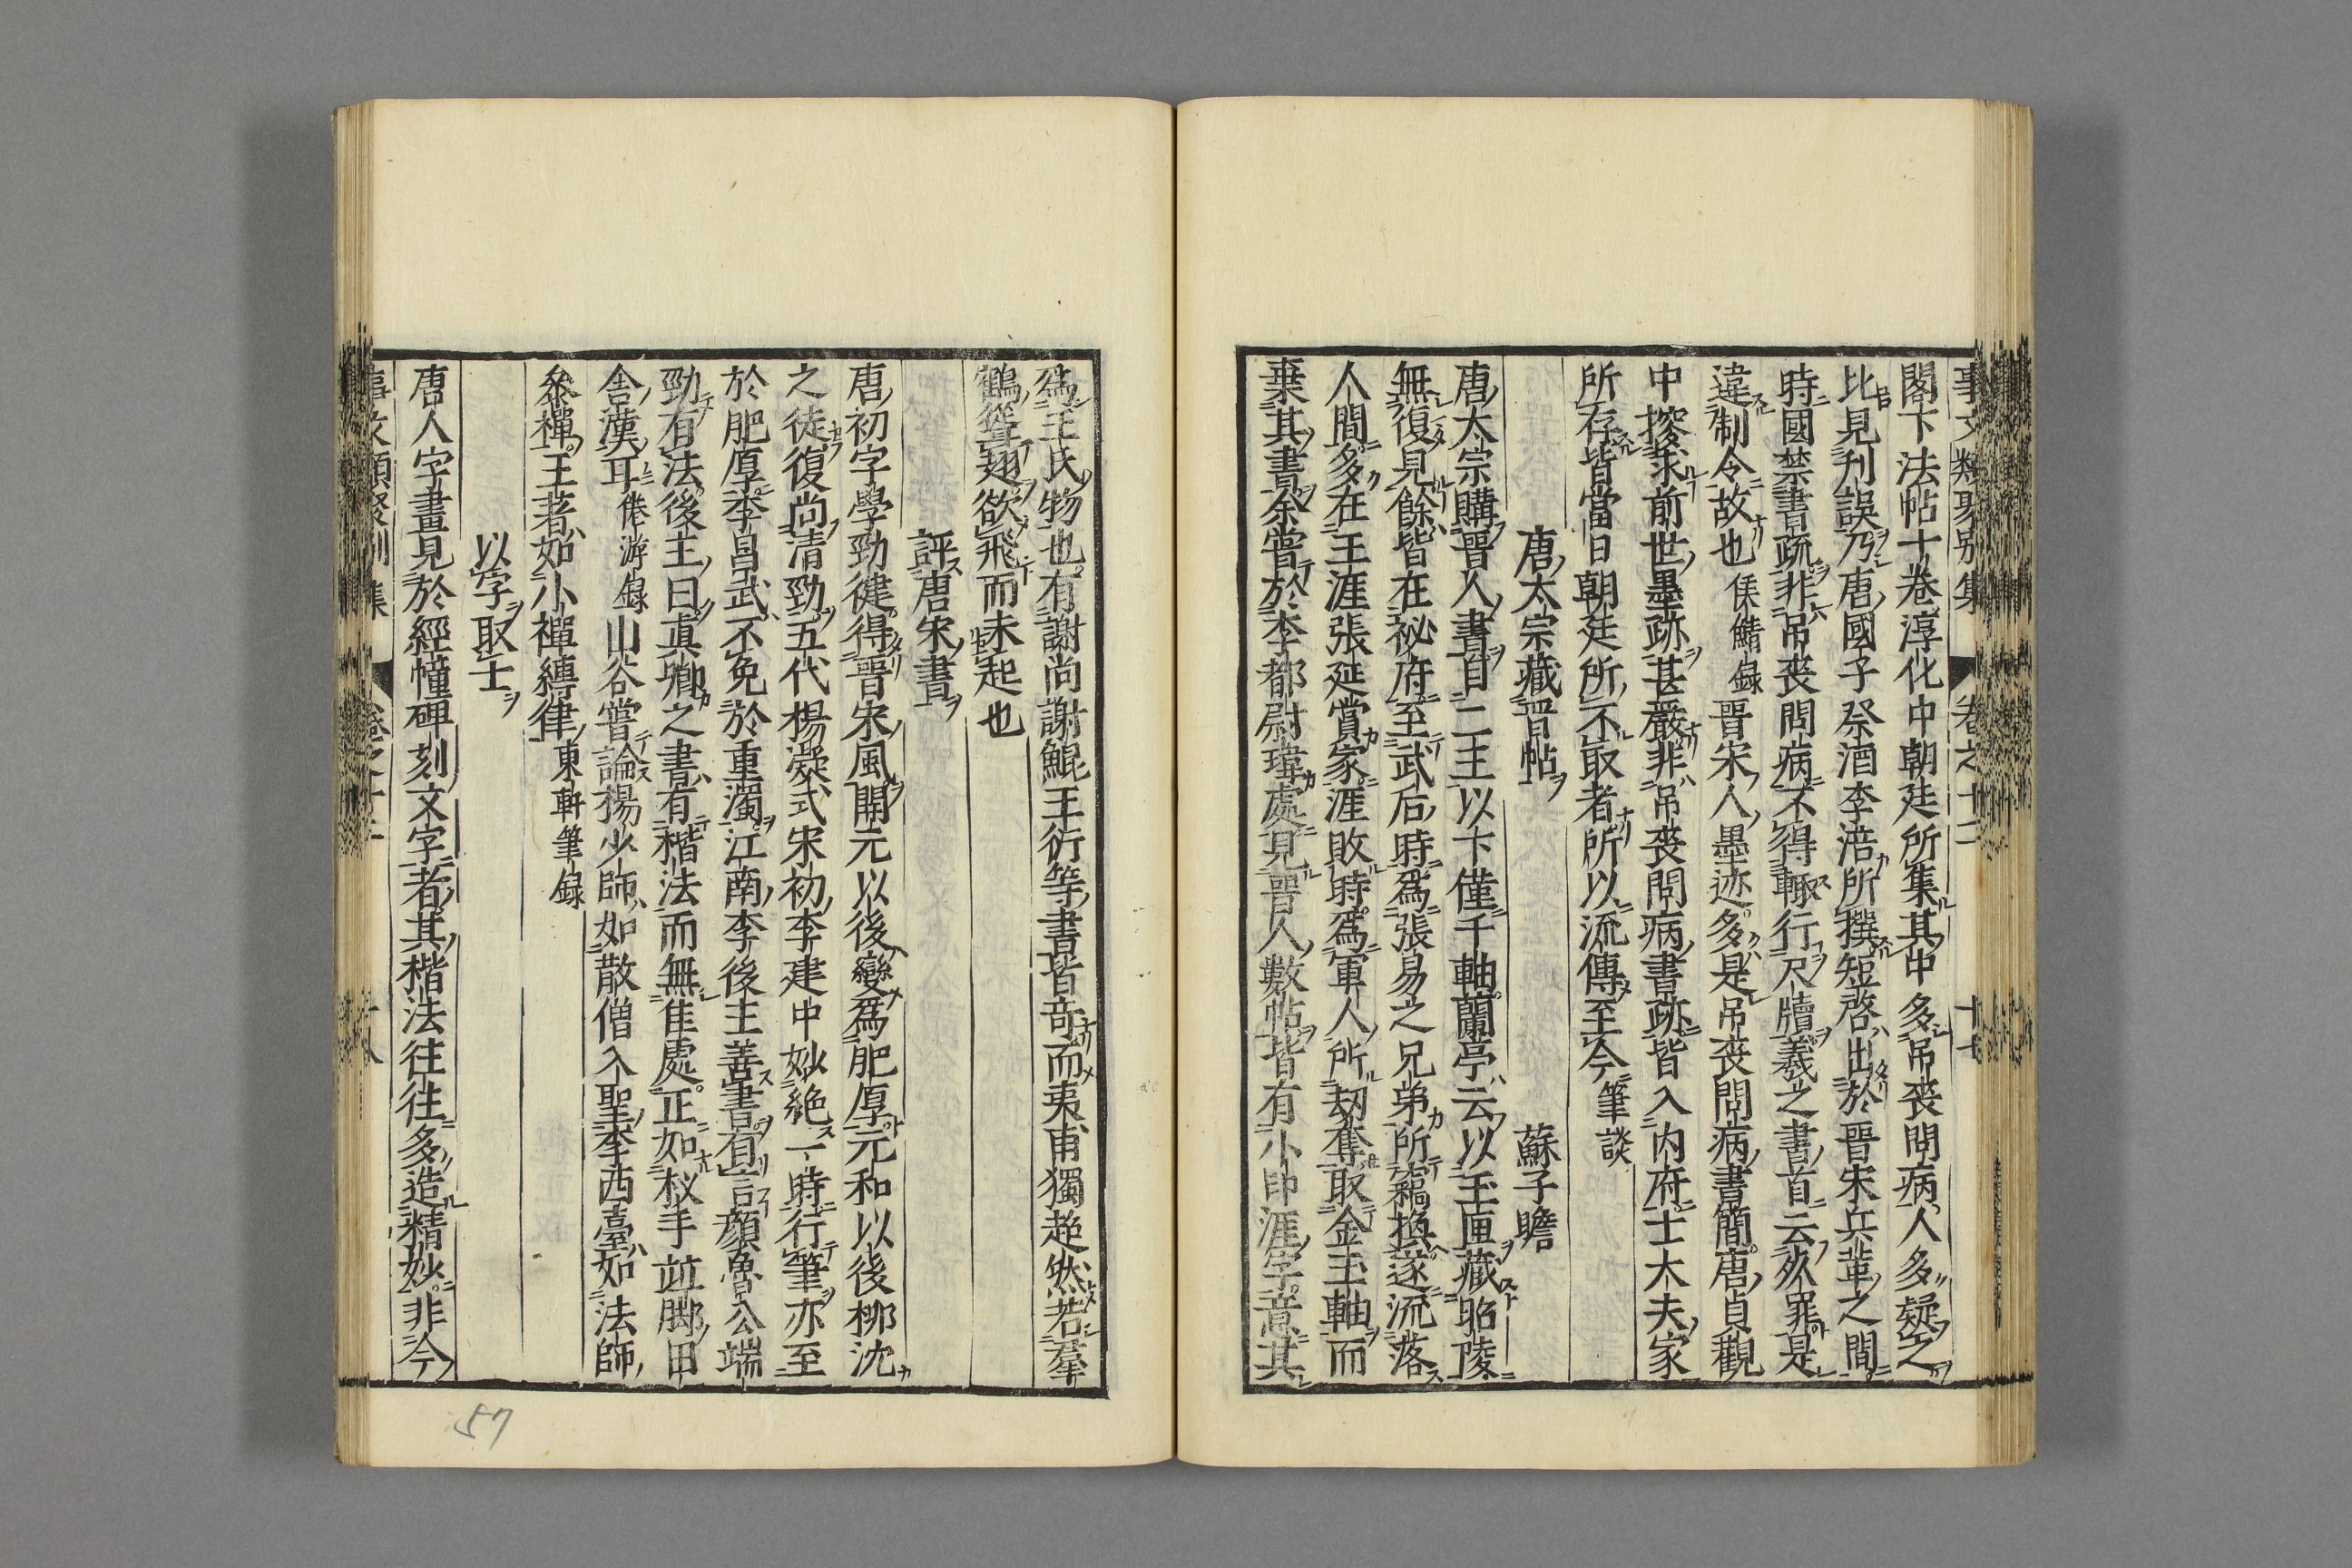 事文類聚別集 卷之十二 十七
閣下法帖十卷淳化中朝廷所集其中多吊喪問病人多疑之
比見刋誤乃唐國子祭酒李涪所撰短啓出於晉宋兵革之間
時國禁書疏非吊喪問病不得輙行尺牘羲之書首云死罪是
違制令故也 侯鯖録 晉宋人墨迹多是吊喪問病書簡唐貞觀
中搜求前世墨跡甚嚴非吊喪問病書跡皆入内府士大夫家
所存皆當日朝廷所不取者所以流傳至今 筆談
唐太宗藏晉帖 蘇子瞻
唐太宗購晉人書自二王以下僅千軸蘭亭云以玉匣藏昭陵
無復見餘皆在祕府至武后時爲張易之兄弟所竊換遂流落
人間多在王涯張延賞家涯敗時爲軍人所刼奪取金玉軸而
棄其書余嘗於李都尉瑋處見晉人數帖皆有小印涯字意其
爲王氏物也有謝尚謝鯤王衍等書皆奇而夷甫獨超然若羣
鶴聳翅欲飛而未起也
評唐宋書
唐初字學勁健得晉宋風開元以後變爲肥厚元和以後柳沈
之徒復尚清勁五代楊凝式宋初李建中妙絶一時行筆亦至
於肥厚李昌武不免於重濁江南李後主善書有言顔魯公端
勁有法後主曰真卿之書有楷法而無佳處正如杈手並脚田
舎漢耳 倦游録 山谷嘗論楊少師如散僧入聖李西臺如法師
叅禪王著如小禪縳律 東軒筆録
以字取士
唐人字畫見於經幢碑刻文字者其楷法往往多造精妙非今
事文類聚別集 卷之十二 十八
57